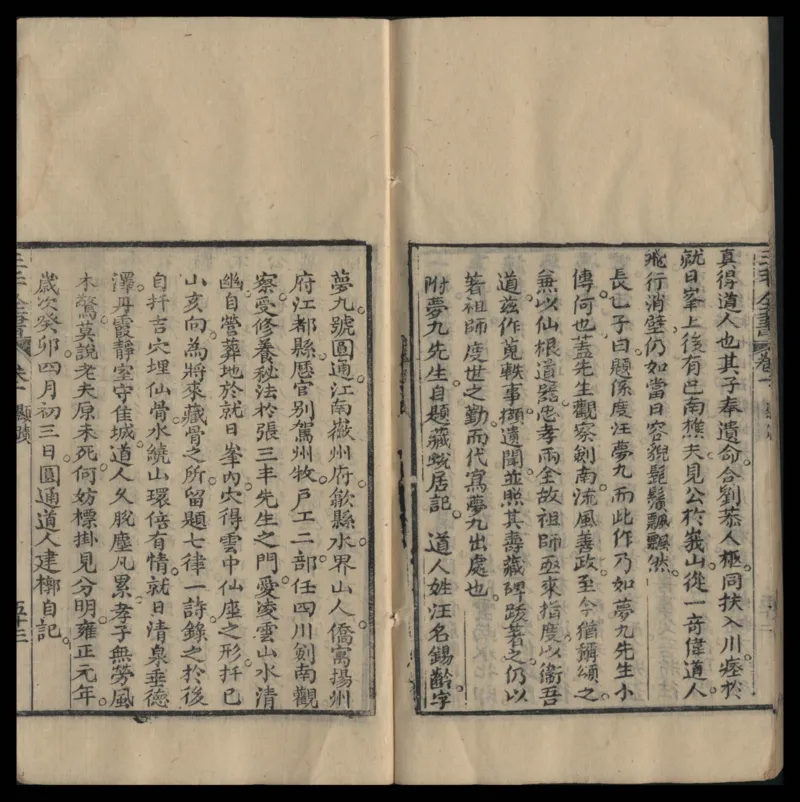 三丰全書 卷一 顯蹟
真得道人也其子奉遺命合劉恭人柩同扶入川瘞於
就日峯上後有巴南樵夫見公於峩山從一奇偉道人
飛行消壁仍如當日容貌髭鬚飄飄然。
長乙子曰題係度汪夢九而此作乃如夢九先生小
傳何也。蓋先生觀察劍南流風善政至今猶稱頌之
兼以仙根道器忠孝兩全故祖師亟來指度以衞吾
道茲作蒐軼事擷遺聞並照其壽藏碑跋著之仍以
著祖師度世之勤而代寫夢九出處也。
附夢九先生自題藏蛻居記。 道人姓汪名錫齡字
夢九號圓通江南徽州府歙縣水界山人僑寓揚州
府江都縣歷官別駕州牧戶工二部任四川劍南觀
察受修養秘法於張三丰先生之門愛凌雲山水清
幽自營葬地於就日峯內穴得雲中仙座之形扦巳
山亥向為將來藏骨之所留題七律一詩錄之於後
自扦吉穴埋仙骨水繞山環倍有情就日清泉垂德
澤丹霞靜室守佳城道人久脫塵凡累孝子無勞風
木驚莫說老夫原未死何妨標掛見分明雍正元年
歲次癸卯四月初三日圓通道人建槨自記。
三丰全書 卷一 顯蹟 五十三